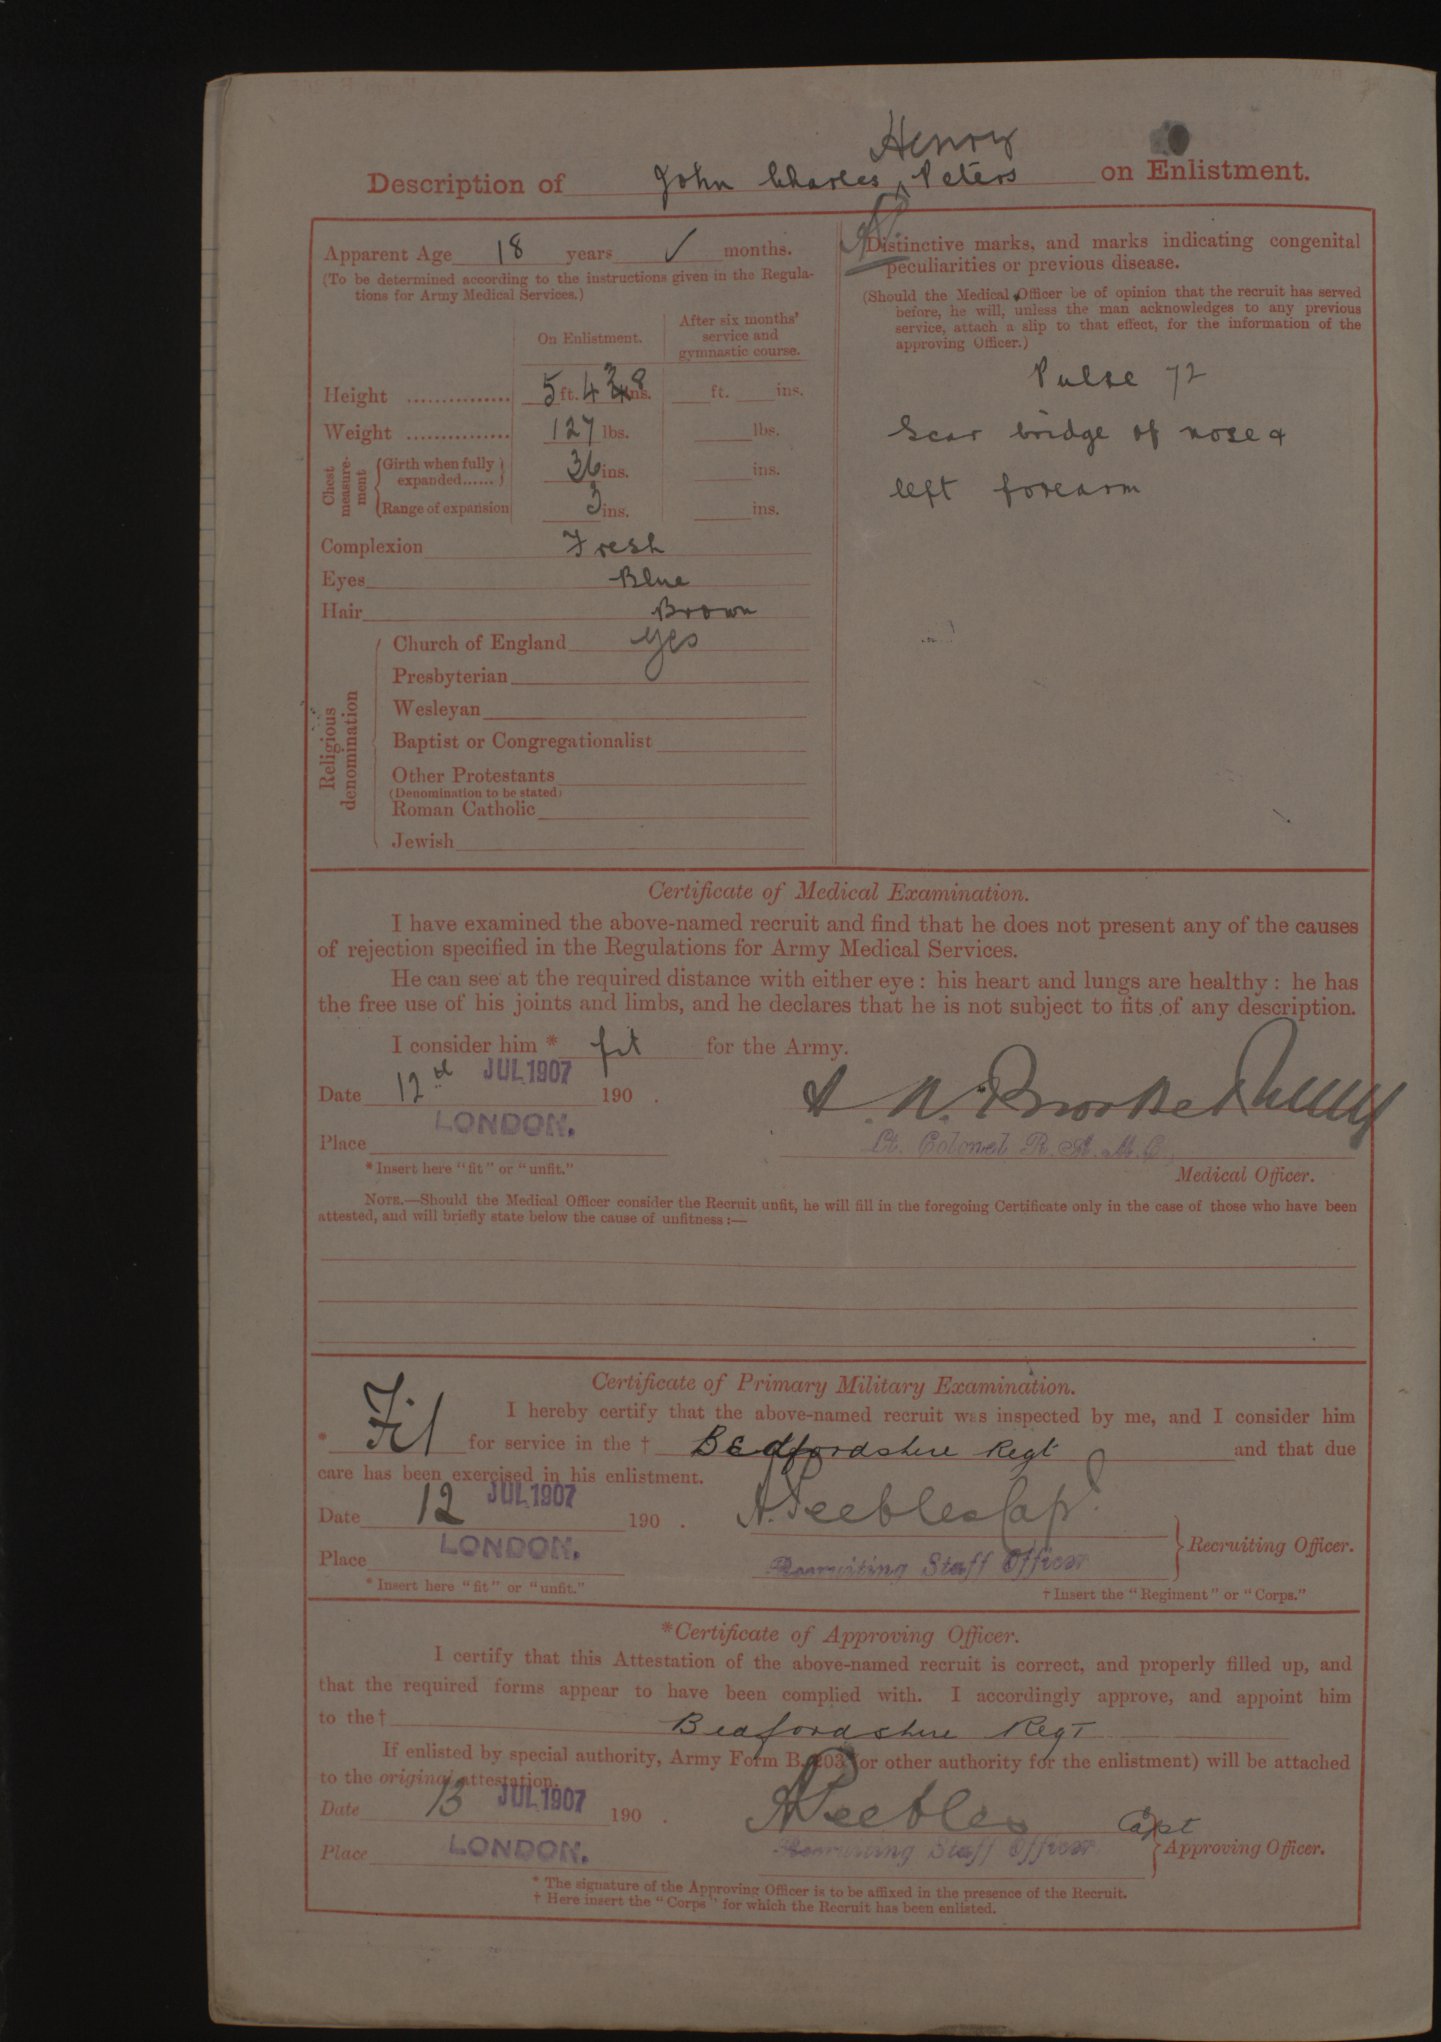 Henry
Description of John Charles ^ Peters on Enlistment.
Apparent Age 18 years ✓ months.
(To be determined according to the instructions given in the Regula-
tions for Army Medical Services.)
On Enlistment.
After six months'
service and
gymnastic course.
Height ............... 5 ft. 4 ins. ft. ins.
Weight ............... 127 lbs. lbs.
Chest
measure-
ment
Girth when fully
expanded...... 36 ins. ins.
Range of expansion 3 ins. ins.
Complexion Fresh
Eyes Blue
Hair Brown
Religious
denomination
Church of England yes
Presbyterian
Wesleyan
Baptist or Congregationalist
Other Protestants
(Denomination to be stated)
Roman Catholic
Jewish
Distinctive marks, and marks indicating congenital
peculiarities or previous disease.
(Should the Medical Officer be of opinion that the recruit has served
before, he will, unless the man acknowledges to any previous
service, attach a slip to that effect, for the information of the
approving Officer.)
Pulse 72
Scar bridge of nose &
left forearm
Certificate of Medical Examination.
I have examined the above-named recruit and find that he does not present any of the causes
of rejection specified in the Regulations for Army Medical Services.
He can see at the required distance with either eye: his heart and lungs are healthy: he has
the free use of his joints and limbs, and he declares that he is not subject to fits of any description.
I consider him * fit for the Army.
Date 12th JUL 1907 190 .
Place LONDON.
Lt. Colonel R. A. M. C.
Medical Officer.
* Insert here "fit" or "unfit."
NOTE.—Should the Medical Officer consider the Recruit unfit, he will fill in the foregoing Certificate only in the case of those who have been
attested, and will briefly state below the cause of unfitness:—
Certificate of Primary Military Examination.
I hereby certify that the above-named recruit was inspected by me, and I consider him
* Fit for service in the † Bedfordshire Regt and that due
care has been exercised in his enlistment.
Date 12 JUL 1907 190 .
A. Peebles Capt.
Place LONDON.
Recruiting Staff Officer
Recruiting Officer.
* Insert here "fit" or "unfit."
† Insert the "Regiment" or "Corps."
*Certificate of Approving Officer.
I certify that this Attestation of the above-named recruit is correct, and properly filled up, and
that the required forms appear to have been complied with. I accordingly approve, and appoint him
to the † Bedfordshire Regt
If enlisted by special authority, Army Form B. 203 (or other authority for the enlistment) will be attached
to the original attestation.
Date 13 JUL 1907 190 .
A Peebles Capt
Place LONDON.
Recruiting Staff Officer
Approving Officer.
* The signature of the Approving Officer is to be affixed in the presence of the Recruit.
† Here insert the "Corps" for which the Recruit has been enlisted.